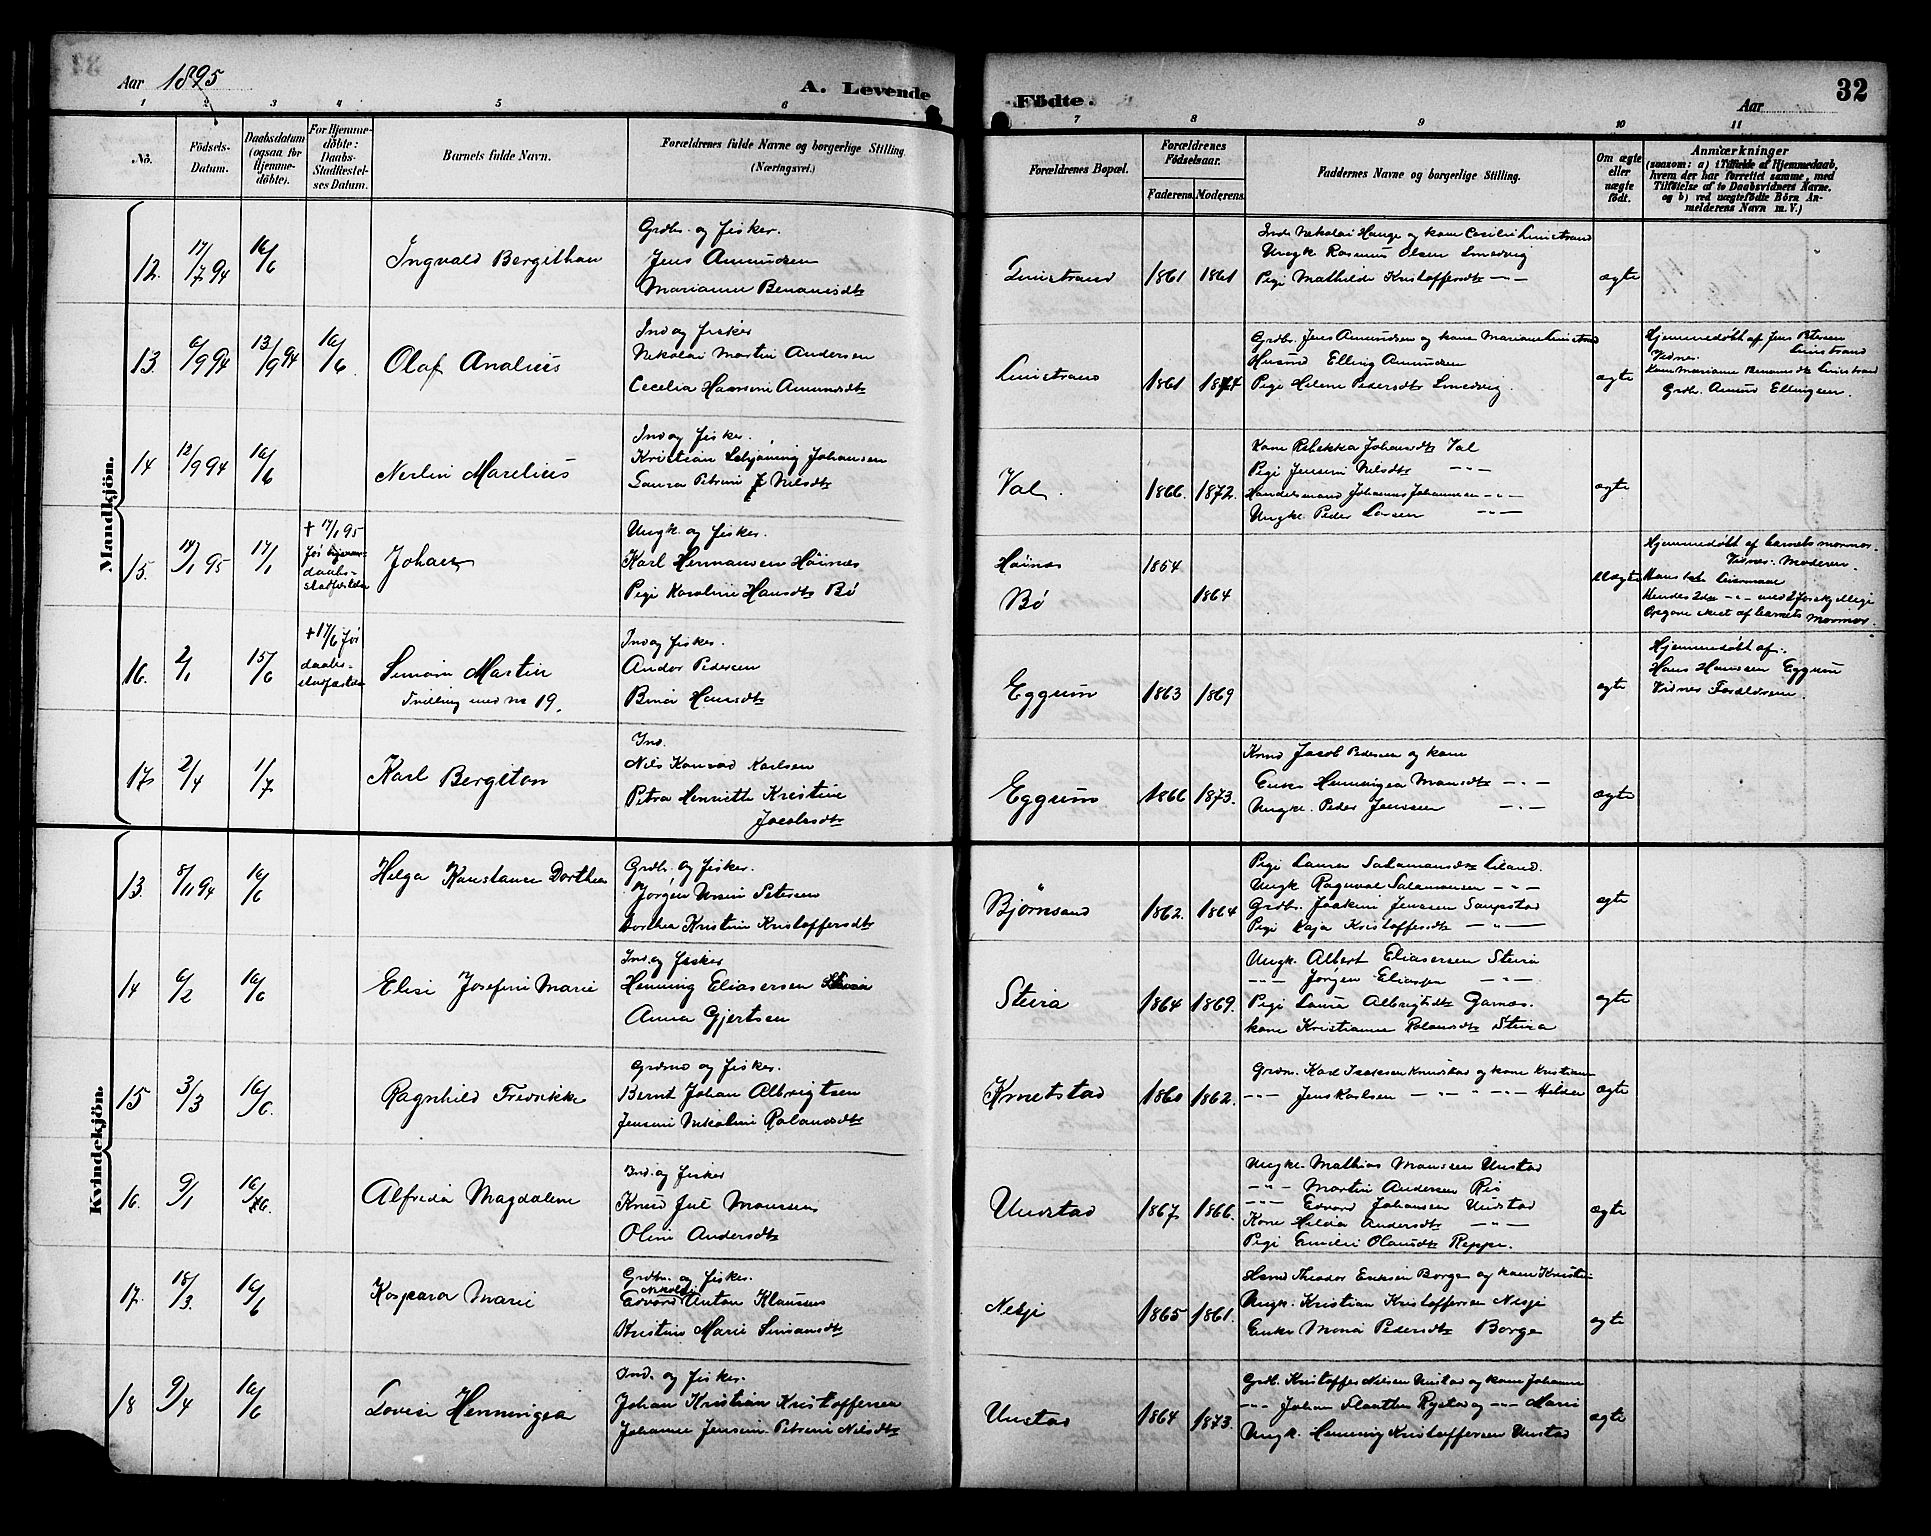 Aar 1895
A. Levende
Födte.
Aar
32
1 2 3 4 5 6 7 8 9 10 11
No.
Födsels-
Datum.
Daabsdatum
(ogsaa for
Hjemme-
döbte).
For Hjemme-
döbte:
Daabs-
Stadfæstel-
ses Datum.
Barnets fulde Navn.
Forældrenes fulde Navne og borgerlige Stilling
(Næringsvei.)
Forældrenes Bopæl.
Forældrenes
Födselsaar.
Faderens. Moderens.
Faddernes Navne og borgerlige Stilling.
Om ægte
eller
uægte
födt.
Anmærkninger
(saasom: a) i Tilfælde af Hjemmedaab,
hvem der har forrettet samme, med
Tilföielse af to Daabsvidners Navne.
og b) ved uægtefödte Börn An-
melderens Navn m. V.)
Mandkjön.
12. 17/7 94 16/6 Ingvald Bergithon
Grdbr. og fisker.
Jens Amundsen
Marianne Benamsdtr
1861 1861
Inds Nikolai Hauge og kone
Ungk Rasmus Olsen Smedvig
Pige Mathilde Kristoffersdtr — " —
ægte
13. 6/9 94 13/9 94 16/6 Olaf Analius
Ind og fisker
Nikolai Martin Andersen
Cecelia Hansine Amundsdtr
1861
Grdbr. Jens Amundsen og kone Mariane
Husmd Elling Amundsen
Pige Helene Pedersdtr Smedvig.
ægte
Hjemmedøbt af Jens Petersen
Vidner
Grdbr. Amund Ellingsen.
14 12/9 94 16/6 Nerlin Marelius
Ind og fisker.
Kristian Schjøning Johansen
Laura Petrine J. Nilsdtr
Val.
1866. 1872.
Kone Rebekka Johansdtr Val
Pige Jensine Nilsdtr — " —
Handelsmand Johannes Johannesen — " —
Ungk. Peder Larsen — " —
ægte
15. 14/1 95 17/1
+ 17/1 95
før hjemme-
daabs-
stadfæstelse
Johan
Ungk og fisker.
Karl Hermansen Høinæs
Pige Karoline Hansdtr Bø
Høinæs
Bø
1854
1864
Uægte
Hjemmedøbt af barnets mormor.
Vidnes: Moderen.
Hans 1ste Leiermaal
Hendes 2det — " — med 2 forskjellige
Opgave skeet af barnets Mormor.
16. 2/1 15/6
+17/6 før
daabs-
stadfæstelse
Simon Martin
Tvilling med no 19.
Ind og fisker.
Andor Pedersen
Bina Hansdtr
Eggum
1863 1869
ægte
Hjemmedøbt af
Hans Hansen Eggum
Vidner Forældrene.
17. 2/4 1/7 Karl Bergiton
Ind.
Nils Konrad Karlsen
Petra Henriette Kristine
Jacobsdtr
Eggum
1866 1873.
Jacob Pedersen og kone
Enke Henningea Monsdtr — " —
Ungk. Peder Jenssen — " —
ægte
Kvindekjön.
13. 8/11 94 16/6 Helga Konstanse Dorthea
Grdbr. og fisker.
Jørgen Petersen
Dorthea Kristine Kristoffersdtr
Bjørnsand
1862. 1864
Pige Laura Salamonsdtr Liland.
Ungk Ragnval Salamonsen — " —
Grdbr. Joakim Jenssen Sandstad
Pige Kaja Kristoffersdtr — " —
ægte
14 6/2 16/6 Elise Josefine Marie
Ind. og fisker
Henning Eliasersen Steira
Anna Gjertsen
Steira
1864 1869.
Ungk. Albert Eliasersen Steira
— " — Jørgen — " —
Pige Laura Albrigtsdtr Garnæs.
kone Kristianne Rolandsdtr Steira
ægte
15 3/3 16/6. Ragnhild Fredrikke
og fisker.
Bernt Johan Albrigtsen
Jensine Nikoline Rolandsdtr
Knutstad
1860 1862.
Karl Isaksen Knutstad og kone Kristian
— " — Jens Karlsen — " — " — " —
ægte
16. 9/1 16/6. Alfreda Magdalene
Ind. og fisker
Knud Jul Monssen
Oline Andersdtr
Unstad
1867. 1866.
Ungk. Mathias Monssen Unstad
— " — Martin Andersen Ris
— " — Edvard Johansen Unstad
Kone Hilda Andersdtr — " —
Pige Emilie Olausdtr Reppe.
ægte
17. 18/3 16/6 Kaspara Marie
Grdbr. og fisker.
Edvard Anton Klausens
Kristine Marie Simonsdtr
Nesje
1865 1861.
Theodor Eriksen Borge og kone Kristi
Ungk. Kristian Kristoffersen Nesje
Enke Mona Pedersdtr Borge
ægte
18 9/4 16/6 Lovise Henningea
Ind. og fisker.
Johan Kristian Kristoffersen
Johanne Jensine Petrine Nilsdtr
Unstad
1864 1873.
Grdb. Kristoffer Nilsen Unstad og kone Johanne
— " — Johan Slaatten Rystad og — " — Marie
Ungk. Henning Kristoffersen Unstad
ægte